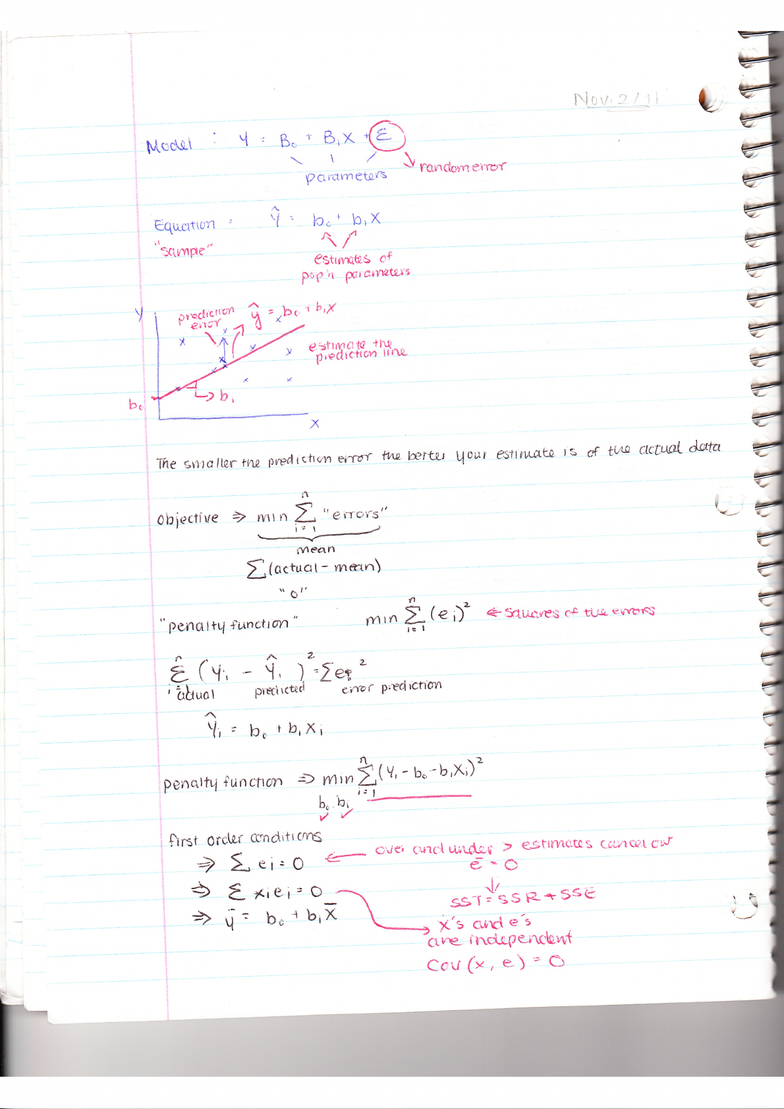 Nov. 2/11
Model : Y = B₀ + B₁X + ε
parameters
random error
Equation = Ŷ = b₀ + b₁X
"sample"
estimates of
pop'n parameters
Y
prediction
error
ŷ = b₀ + b₁X
estimate the
prediction line
b₁
b₀
X
The smaller the prediction error the better your estimate is of the actual data
Objective ⇒ min Σ "errors"
n
i = 1
mean
Σ(actual - mean)
"0"
"penalty function" min Σ (ei)² ← squares of the errors
n
i=1
n
Σ (Yi - Ŷi)² = Σei²
i = actual predicted error prediction
Ŷi = b₀ + b₁Xi
penalty function ⇒ min Σ (Yi - b₀ - b₁Xi)²
n
i=1
b₀ b₁
first order conditions
over and under > estimates cancel out
⇒ Σ ei = 0
ē = 0
⇒ Σ xiei = 0
SST = SSR + SSE
⇒ ȳ = b₀ + b₁X̄
x's and e's
are independent
Cov (x, e) = 0